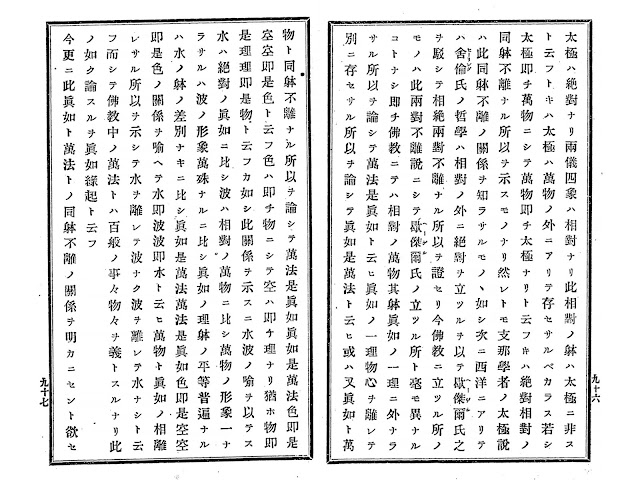 太極ハ絶對ナリ兩儀四象ハ相對ナリ此相對ノ躰ハ太極ニ非ス
ト云フトキハ太極ハ萬物ノ外ニアリテ存セサルベカラス若シ
太極即チ萬物ニシテ萬物即チ太極ナリト云フキハ絶對相對ノ
同躰不離ナル所以ヲ示スモノナリ然レトモ支那學者ノ太極說
ハ此同躰不離ノ關係ヲ知ラサルモノヽ如シ次ニ西洋ニアリテ
ハ舍倫氏ノ哲學ハ相對ノ外ニ絶對ヲ立ツルヲ以テ歇傑爾氏之
ヲ駁シテ相絶兩對不離ナル所以ヲ證セリ今佛教ニ立ツル所ノ
モノハ此兩對不離說ニシテ歇傑爾氏ノ立ツル所ト毫モ異ナル
コトナシ即チ佛教ニテハ相對ノ萬物其躰眞如ノ一理ニ外ナラ
サル所以ヲ論シテ萬法是眞如ト云ヒ眞如ノ一理物心ヲ離レテ
別ニ存セサル所以ヲ論シテ眞如是萬法ト云ヒ或ハ又眞如ト萬
九十六
物ト同躰不離ナル所以ヲ論シテ萬法是眞如眞如是萬法色即是
空空即是色ト云フ色ハ即チ物ニシテ空ハ即チ理ナリ猶ホ物即
是理理即是物ト云フカ如シ此關係ヲ示スニ水波ノ喩ヲ以テス
水ハ絶對ノ眞如ニ比シ波ハ相對ノ萬物ニ比シ萬物ノ形象一ナ
ラサルハ波ノ形象萬殊ナルニ比シ眞如ノ理躰ノ平等普遍ナル
ハ水ノ躰ノ差別ナキニ比シ眞如是萬法萬法是眞如色即是空空
即是色ノ關係ヲ喩ヘテ水即波波即水ト云ヒ萬物ト眞如ノ相離
レサル所以ヲ示シテ水ヲ離レテ波ナク波ヲ離レテ水ナシト云
フ而シテ佛教中ノ萬法トハ百般ノ事々物々ヲ義トスルナリ此
ノ如ク論スルヲ眞如緣起ト云フ
今更ニ此眞如ト萬法トノ同躰不離ノ關係ヲ明カニセント欲セ
九十七